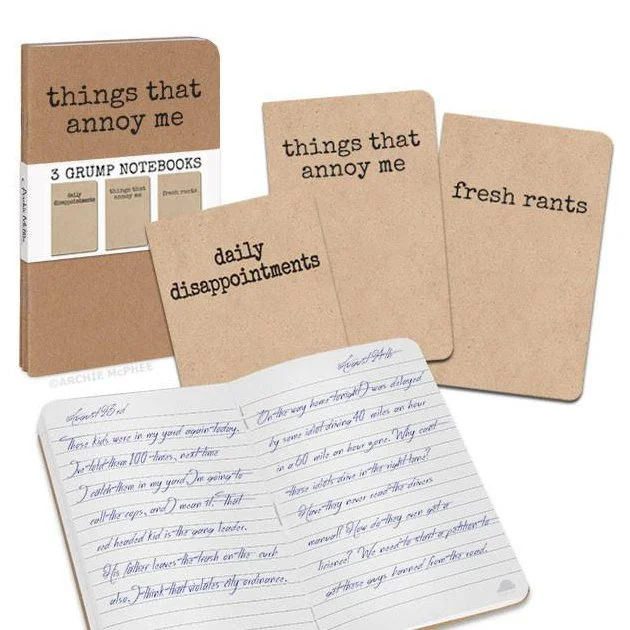 things that
annoy me
3 GRUMP NOTEBOOKS
daily
disappointments
things that
annoy me
fresh rants
things that
annoy me
fresh rants
daily
disappointments
©ARCHIE McPHEE
August 23rd
Those kids were in my yard again today.
I've told them 100 times, next time
I catch them in my yard I'm going to
call the cops, and I mean it. That
red headed kid is the gang leader.
His father leaves the trash on the curb
also. I think that violates city ordinance.
August 24th
On the way home tonight I was delayed
by some idiot driving 40 miles an hour
in a 60 mile an hour zone. Why cant
these idiots drive in the right lane?
Have they never read the drivers
manual? How do they even get a
lisience? We need to start a petition to
get these guys banned from the road.